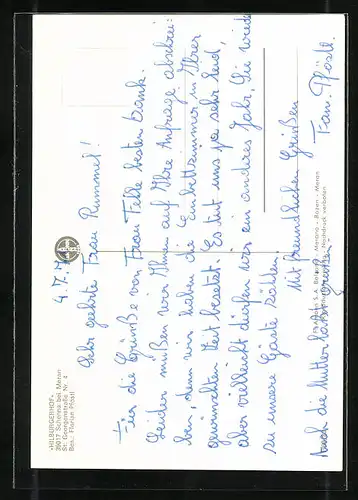 4.7.7
Sehr geehrte Frau Rummel!
Für die Grüße von Frau Tilde besten Dank.
Leider müßen wir Ihnen auf Ihre Anfrage abschrei-
ben, denn wir haben die Einbettzimmer in Ihrer
gewünschten Zeit besetzt. Es tut uns ja sehr leid,
aber vielleicht dürfen wir ein anderes Jahr Sie wieder
zu unsere Gäste zählen.
Mit freundlichen Grüßen
Frau Pföstl.
Auch die Mutter läßt grüßen
«HILBURGERHOF»
39017 Schenna bei Meran
St. Georgenstraße Nr. 4
Bes.: Florian Pföstl
S. A. Merano - Bozen - Meran
Nachdruck verboten